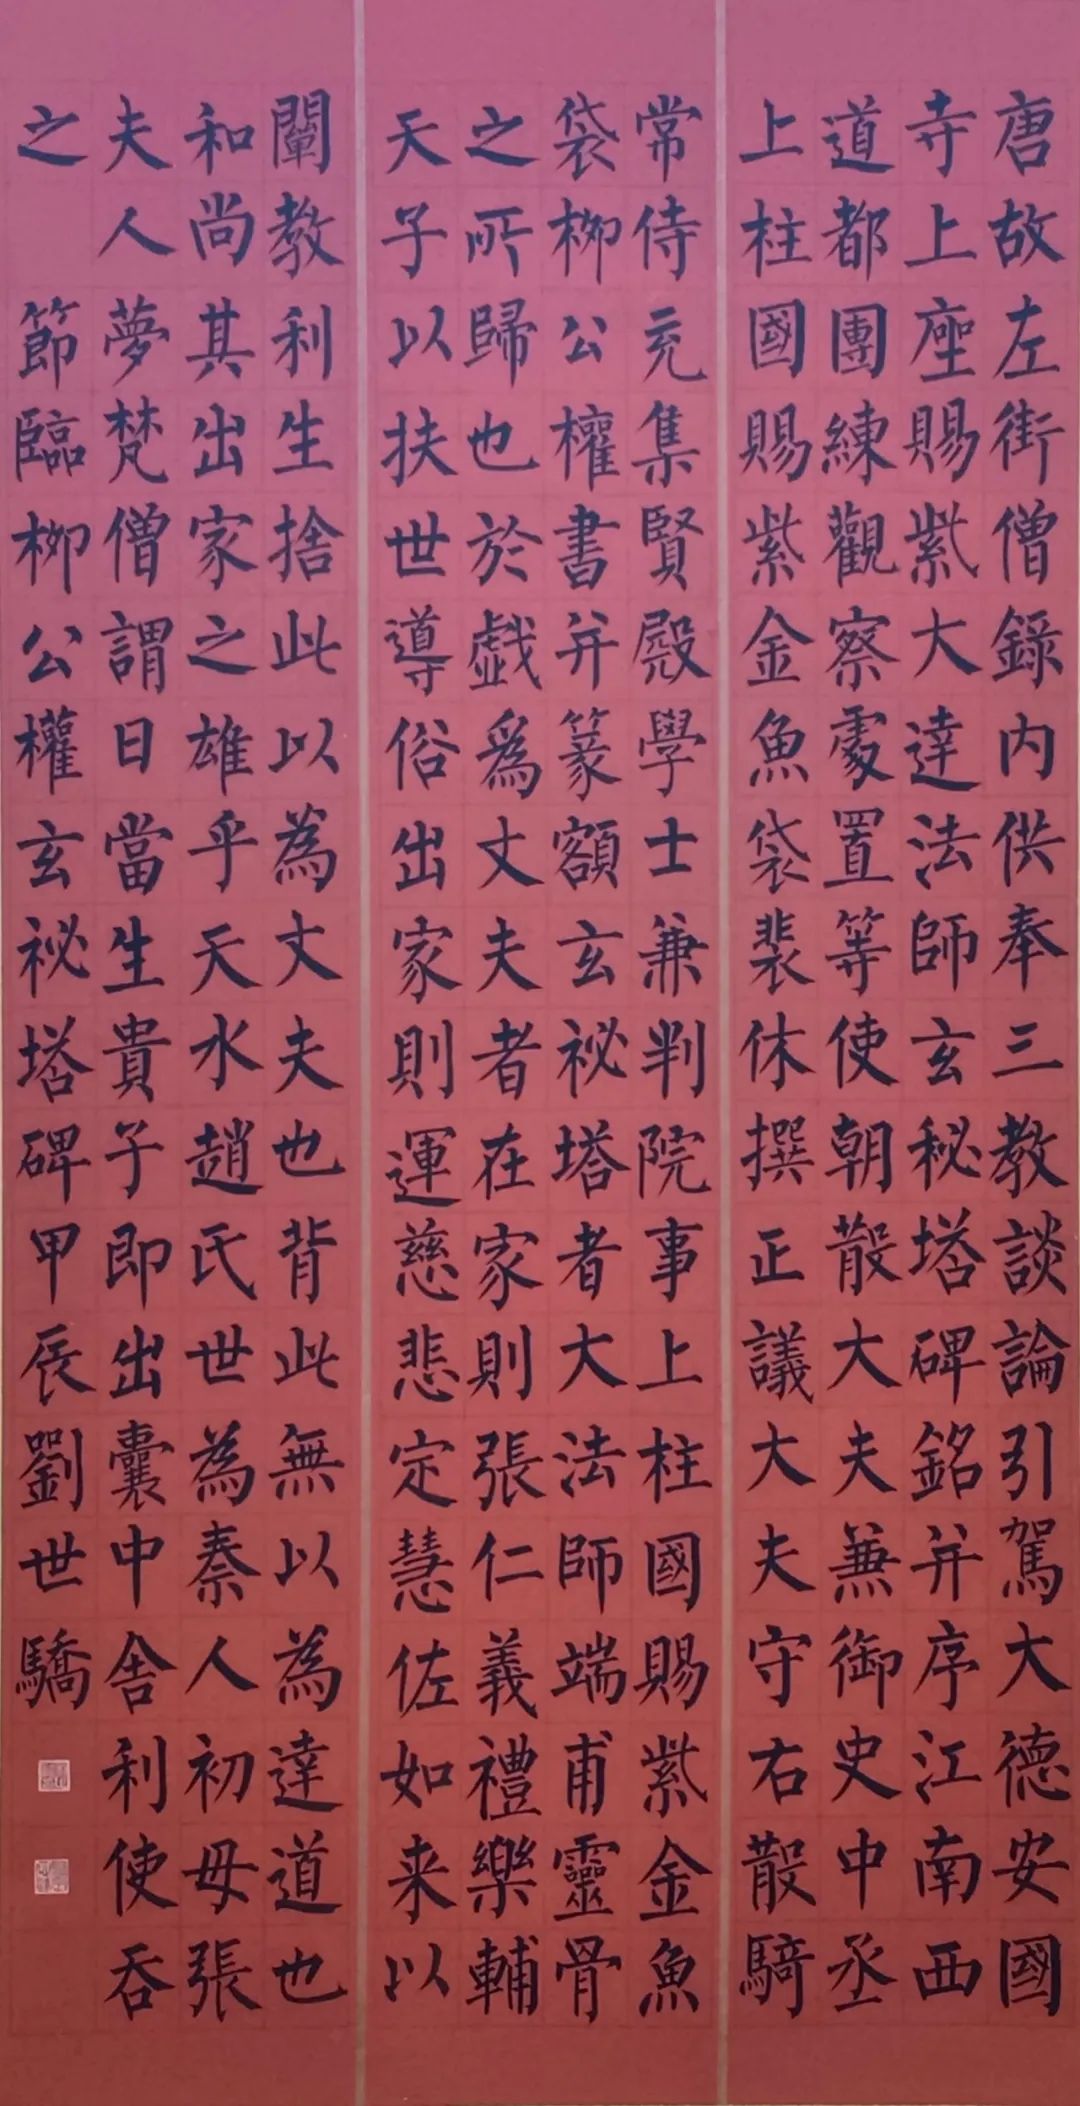 唐故左街僧錄内供奉三教談論引駕大德安國
寺上座賜紫大達法師玄秘塔碑銘并序江南西
道都團練觀察處置等使朝散大夫兼御史中丞
上柱國賜紫金魚袋裴休撰正議大夫守右散騎
常侍充集賢殿學士兼判院事上柱國賜紫金魚
袋柳公權書并篆額玄祕塔者大法師端甫靈骨
之所歸也於戲為丈夫者在家則張仁義禮樂輔
天子以扶世導俗出家則運慈悲定慧佐如来以
闡教利生捨此以為丈夫也背此無以為達道也
和尚其出家之雄乎天水趙氏世為秦人初母張
夫人夢梵僧謂曰當生貴子即出囊中舎利使吞
之 節臨柳公權玄祕塔碑甲辰劉世驕